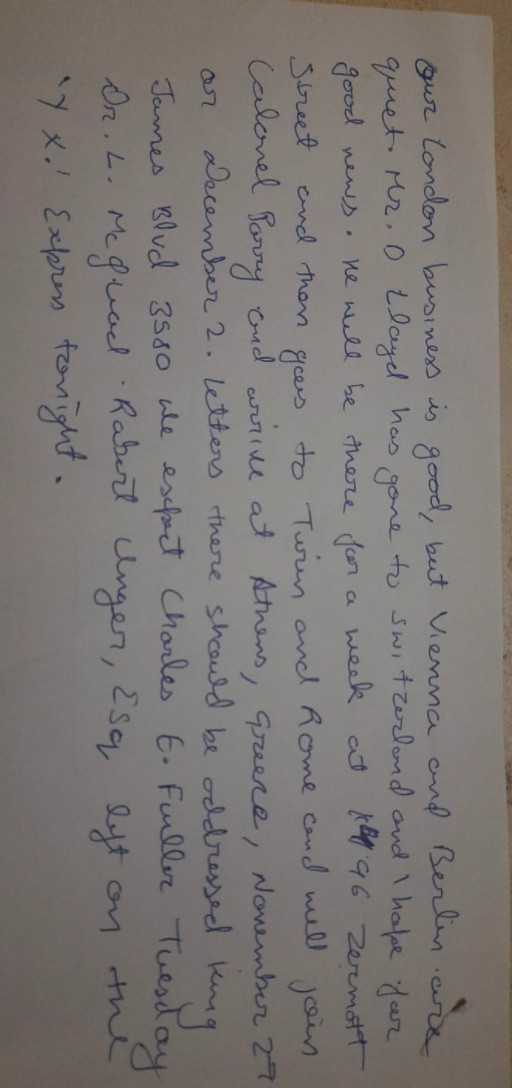 Our London business is good, but Vienna and Berlin are
quiet. Mr. D Lloyd has gone to Switzerland and I hope for
good news. He will be there for a week at 96 Zermott
Street and then goes to Turin and Rome and will join
Colonel Parry and arrive at Athens, Greece, November 27
or December 2. Letters there should be addressed King
James Blvd 3580 We expect Charles E. Fuller Tuesday
Dr. L. McQuad. Robert Unger, Esq left on the
'Y X.' Express tonight.